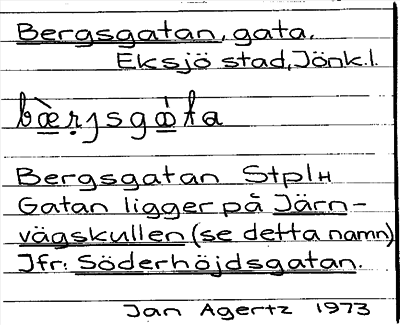 Bergsgatan, gata.
Eksjö stad, Jönk.l.
bæ̀rjsgɑ̀ta
Bergsgatan StplH
Gatan ligger på Järn-
vägskullen (se detta namn)
Jfr: Söderhöjdsgatan.
Jan Agertz 1973